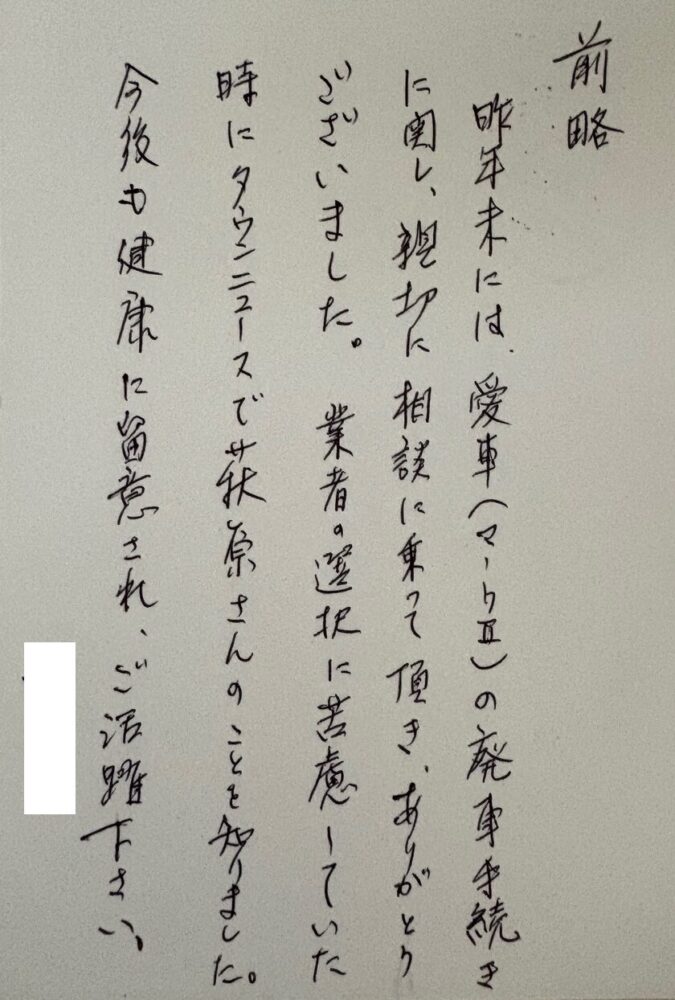 前略
昨年末には、愛車(マークⅡ)の廃車手続き
に関し、親切に相談に乗って頂き、ありがとう
ございました。業者の選択に苦慮していた
時にタウンニュースで萩原さんのことを知りました。
今後も健康に留意され、ご活躍下さい。